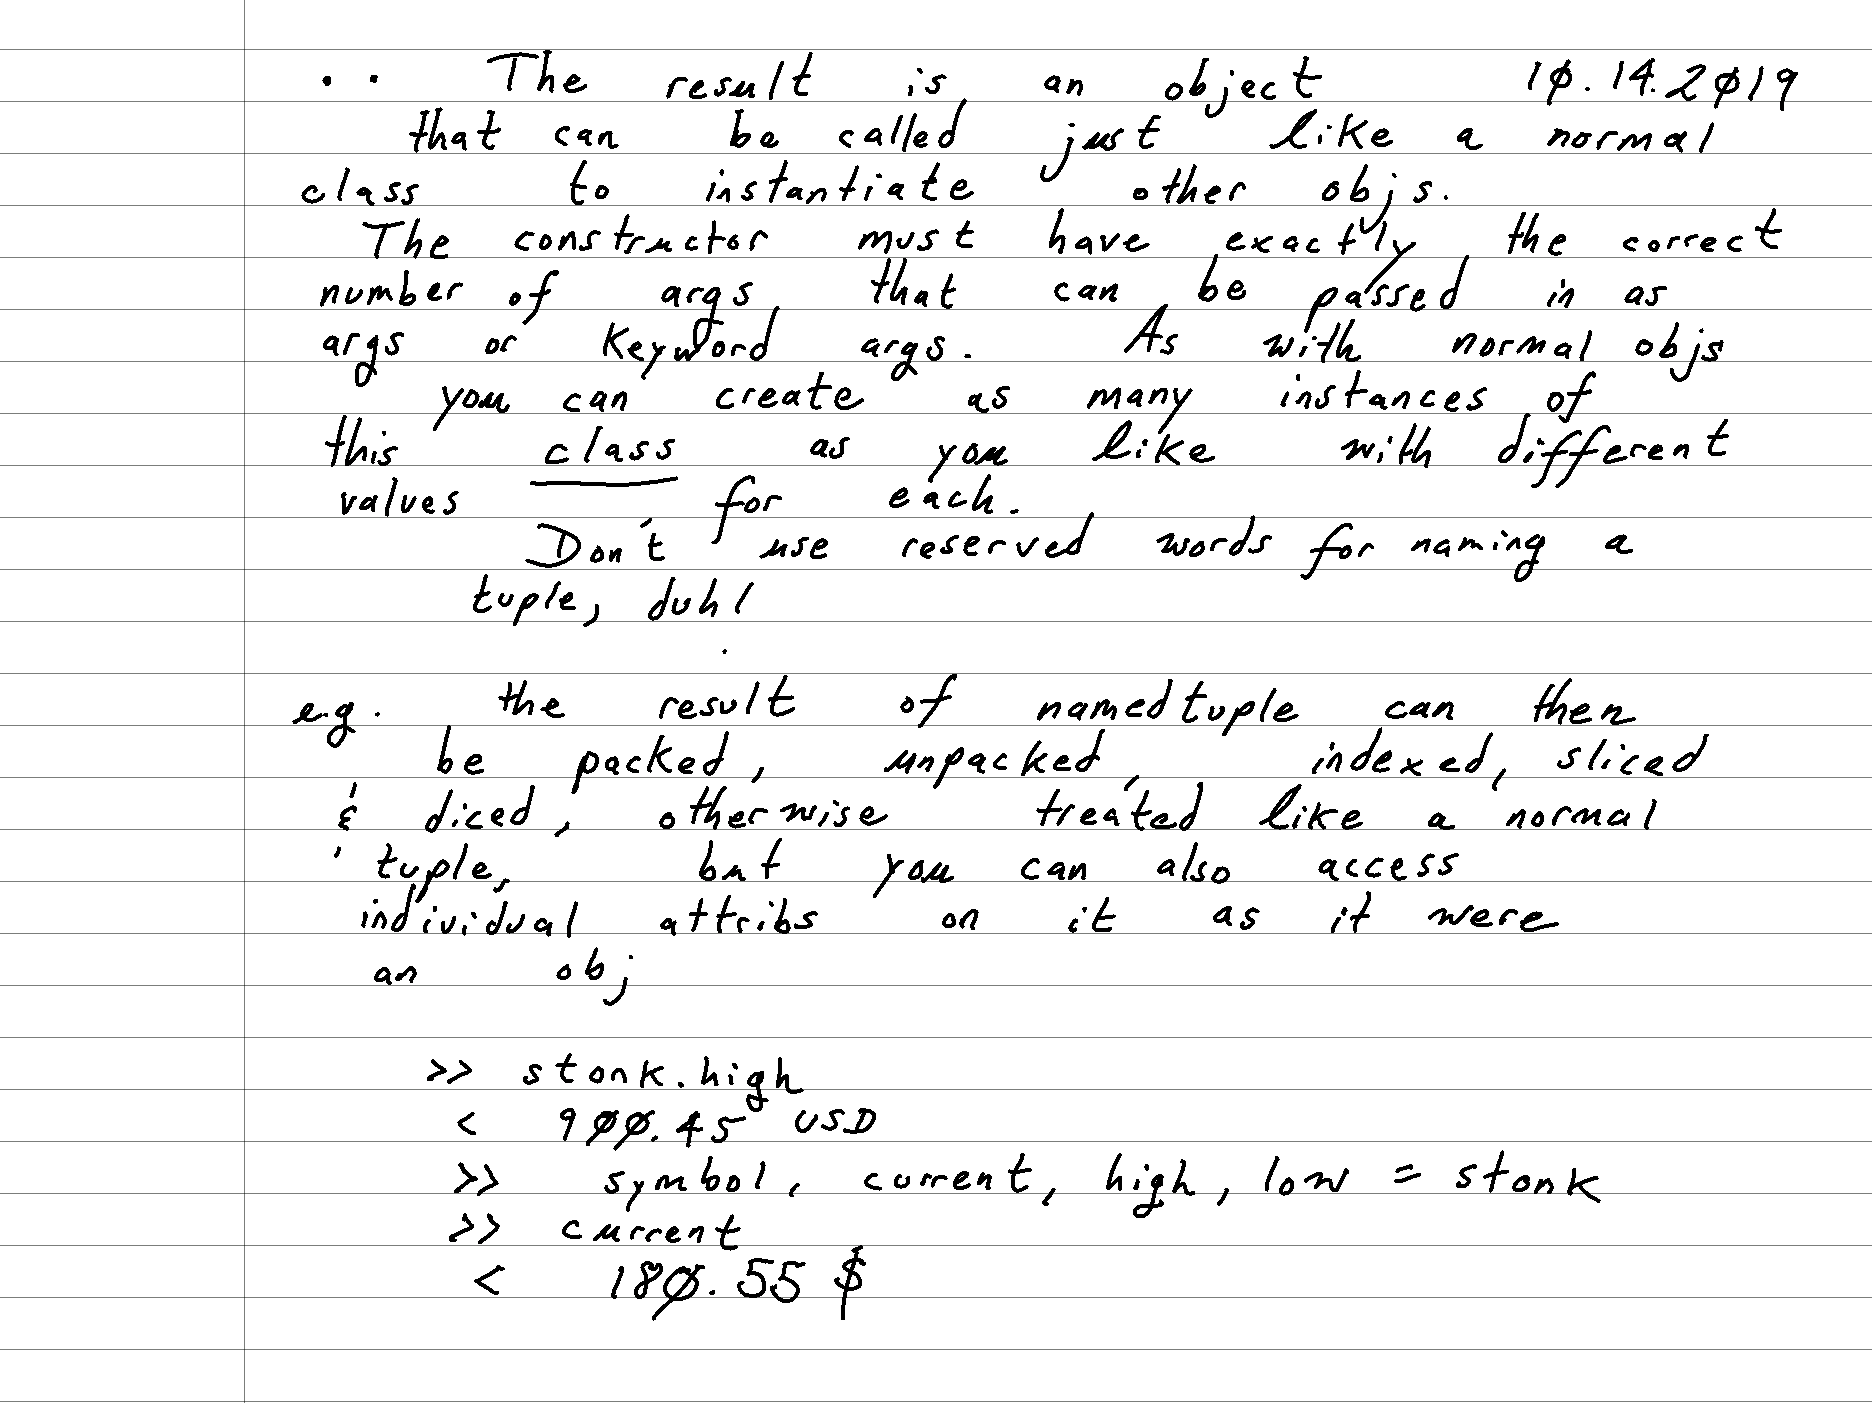 .. The result is an object 10.14.2019
that can be called just like a normal
class to instantiate other objs.
The constructor must have exactly the correct
number of args that can be passed in as
args or keyword args. As with normal objs
you can create as many instances of
this class as you like with different
values for each.
Don't use reserved words for naming a
tuple, duh!
e.g. the result of namedtuple can then
be packed, unpacked, indexed, sliced
& diced, otherwise treated like a normal
tuple, but you can also access
individual attribs on it as it were
an obj
>> stonk.high
< 900.45 USD
>> symbol, current, high, low = stonk
>> current
< 180.55 $